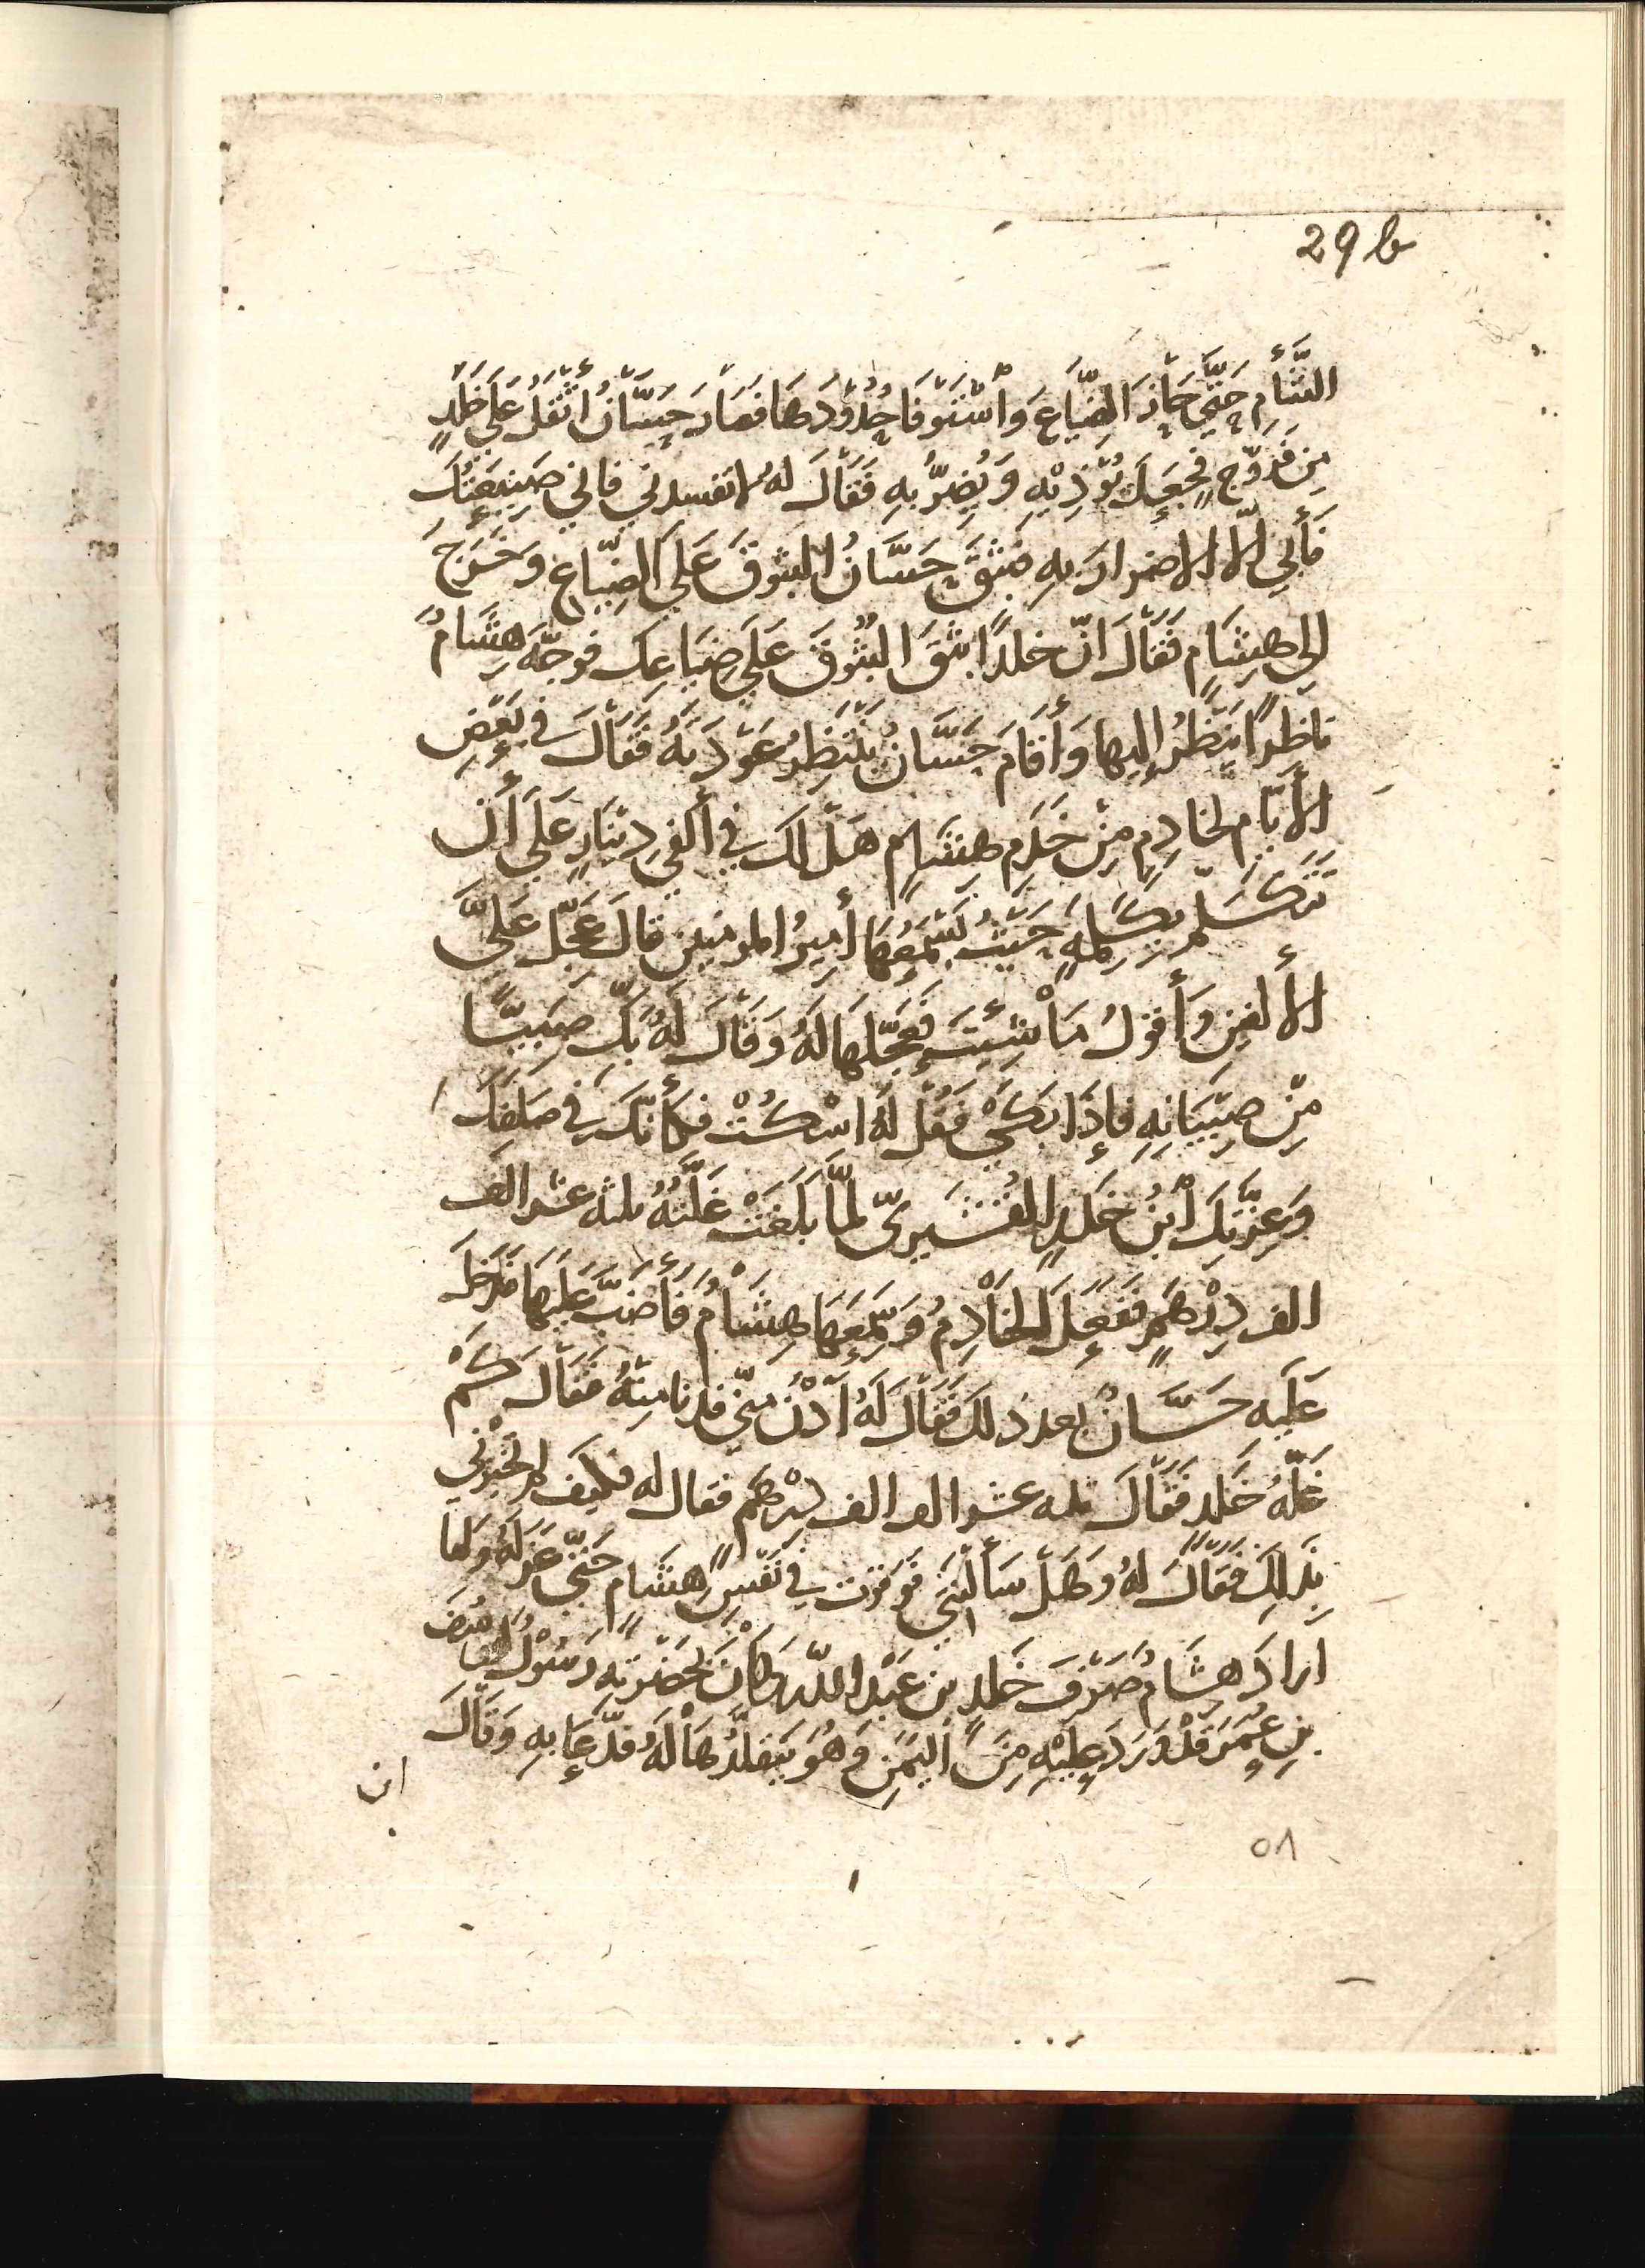 29b
الشَّأْمِ حَتَّى حَازَ الضِّيَاعَ وَاسْتَوْفَا حُدُوْدَهَا فَصَارَ حَسَّانُ أَثْقَلُ عَلَى خَلَدٍ
مِن فَرُّوْجٍ فَجَعَلَ يُؤْذِيْهِ وَيُضِرُّ بِهِ فَقَالَ لهُ لا تفسدني فاني صَنِيْعَتُكَ
فَأَبي الّا الاضرارَ بِهِ فبَثَقَ حَسَّانُ البُثوقَ عَلَى الضِّيَاعِ وَخَرَجَ
الى هِشَامٍ فَقَالَ انّ خلدًا بثَقَ البُثُوقَ عَلَى ضِيَاعِكَ فوجّهَ هِشَامٌ
نَاظِرًا يَنْظُرُ إليها وَأَقَامَ حَسَّانُ يَنْتَظِرُ عَوْدَتَهُ فَقَالَ في بَعْضِ
الأيّام لخادِمٍ مِنْ خَدَمِ هِشَامٍ هَلْ لكَ في أَلْفِ دِيْنَارٍ عَلَى أَن
تَتَكَلَّمَ بكَلِمَةٍ حَيْثُ يَسْمَعُهَا أَمِيرُ المومنين قالَ عَجِّلْ عَلَىَّ
الأَلفَ وَأَقولُ مَا شِئْتَ فعَجَّلهَا لهُ وَقَالَ لَهُ بَكِّ صَبِيًّا
مِنْ صِبْيَانِهِ فإِذَا بَكَى فَقُلْ لَهُ اسْكُتْ فَكَأَنّكَ في صَلَفِكَ
وَعِزَّتِكَ ابْنُ خَلَدٍ القَسْرِيّ لمّا بَلَغَتْ غَلّتُهُ ثلثه عشر الف
الف دِرْهَمٍ فَفَعَلَ الخَادِمُ وَسَمِعَهَا هِشَامُ فَأَضَبَّ عَلَيْهَا فَدَخَلَ
عَلَيه حَسَّانُ بعد ذلكَ فَقَالَ لَهُ ادْنُ مِنّي فدنا مِنْهُ فَقَالَ كَمْ
غَلّةُ خَلَد فَقَالَ ثلثه عشر الف الف دِرْهَم فقال له فكيفَ لم تُخْبِرْني
بِذَلِكَ فَقَالَ لهُ وَهَلْ سَأَلْتَنِي فوقرت في نَفْسِ هِشَامٍ حَتّى عَزَلَهُ وَلمّا
ارادَ هِشَامُ صَرْفَ خَلَدِ بن عَبْدِ اللّه وَكانَ بحَضْرَتِهِ رَسُوْلٌ ليوسُفَ
بنِ عُمَرَ قَدْ وَرَدَ عَلَيْهِ مِنَ اليَمَنِ وَهُوَ يَتَقلّدُهَا لَهُ فدَعَا بِهِ وَقَالَ
ان
٥٨